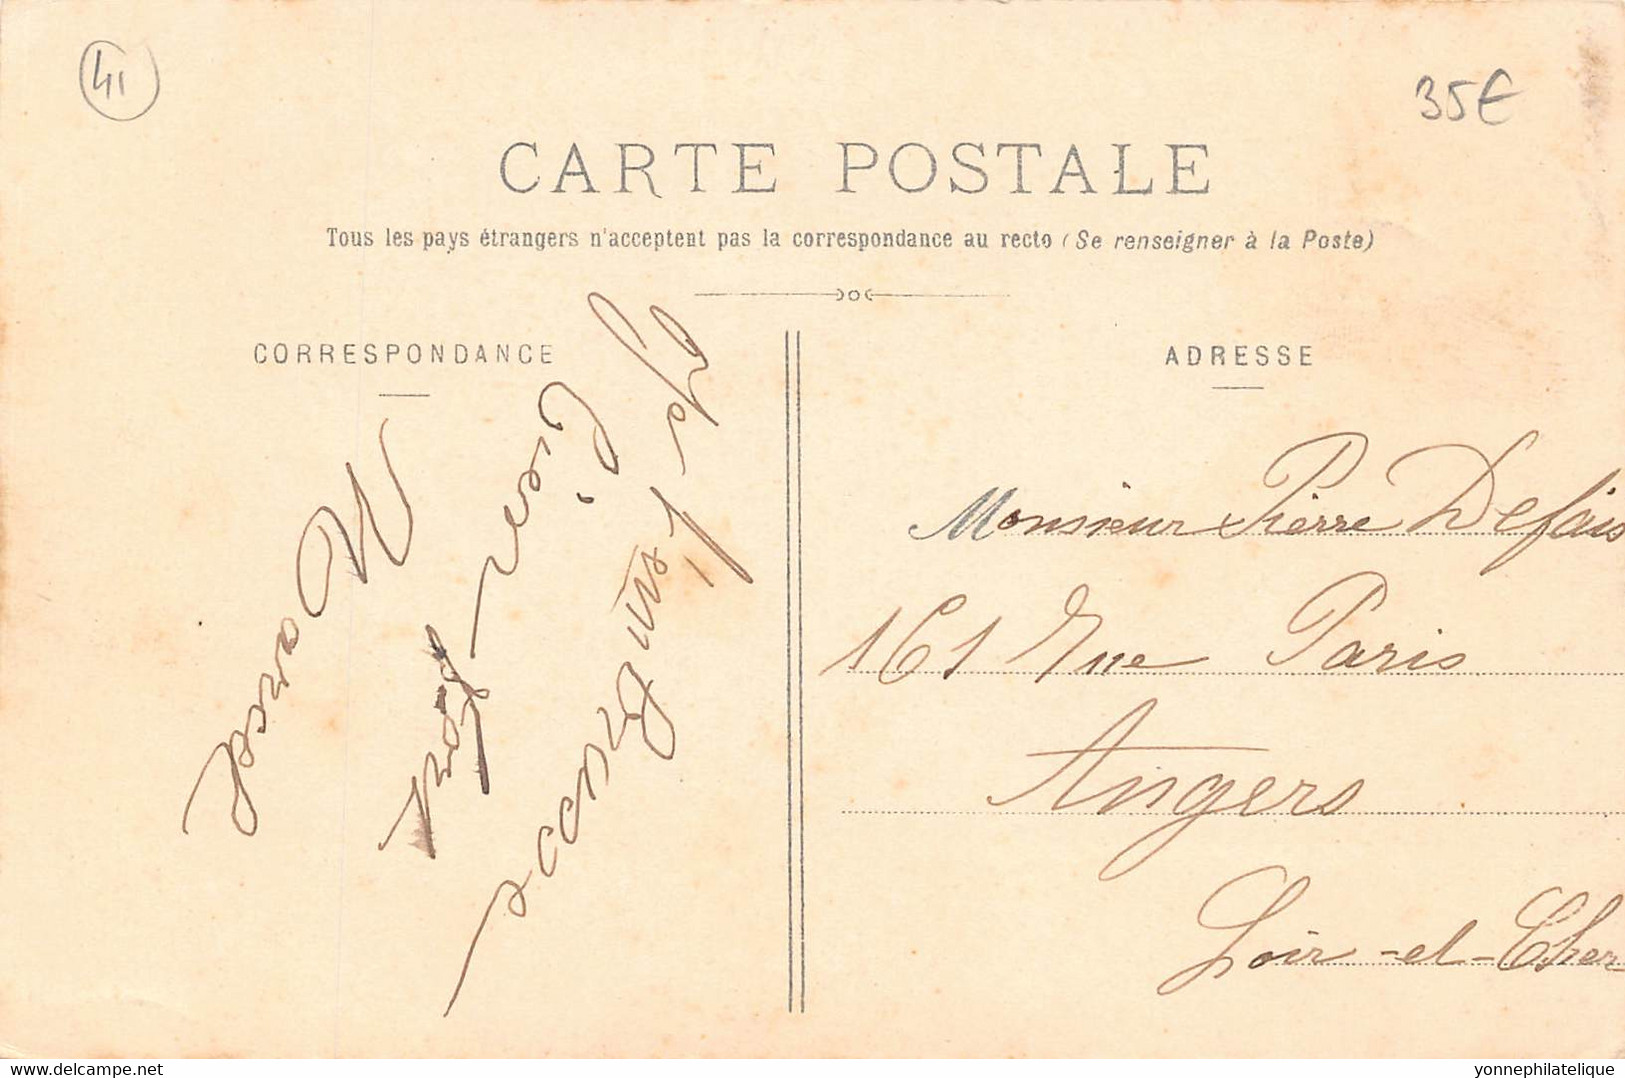 41
35€
CARTE POSTALE
Tous les pays étrangers n'acceptent pas la correspondance au recto (Se renseigner à la Poste)
CORRESPONDANCE
ADRESSE
Marcel
Monsieur Pierre Defais
161 Rue Paris
Angers
Loir-et-Cher
delcampe.net
yonnephilatelique